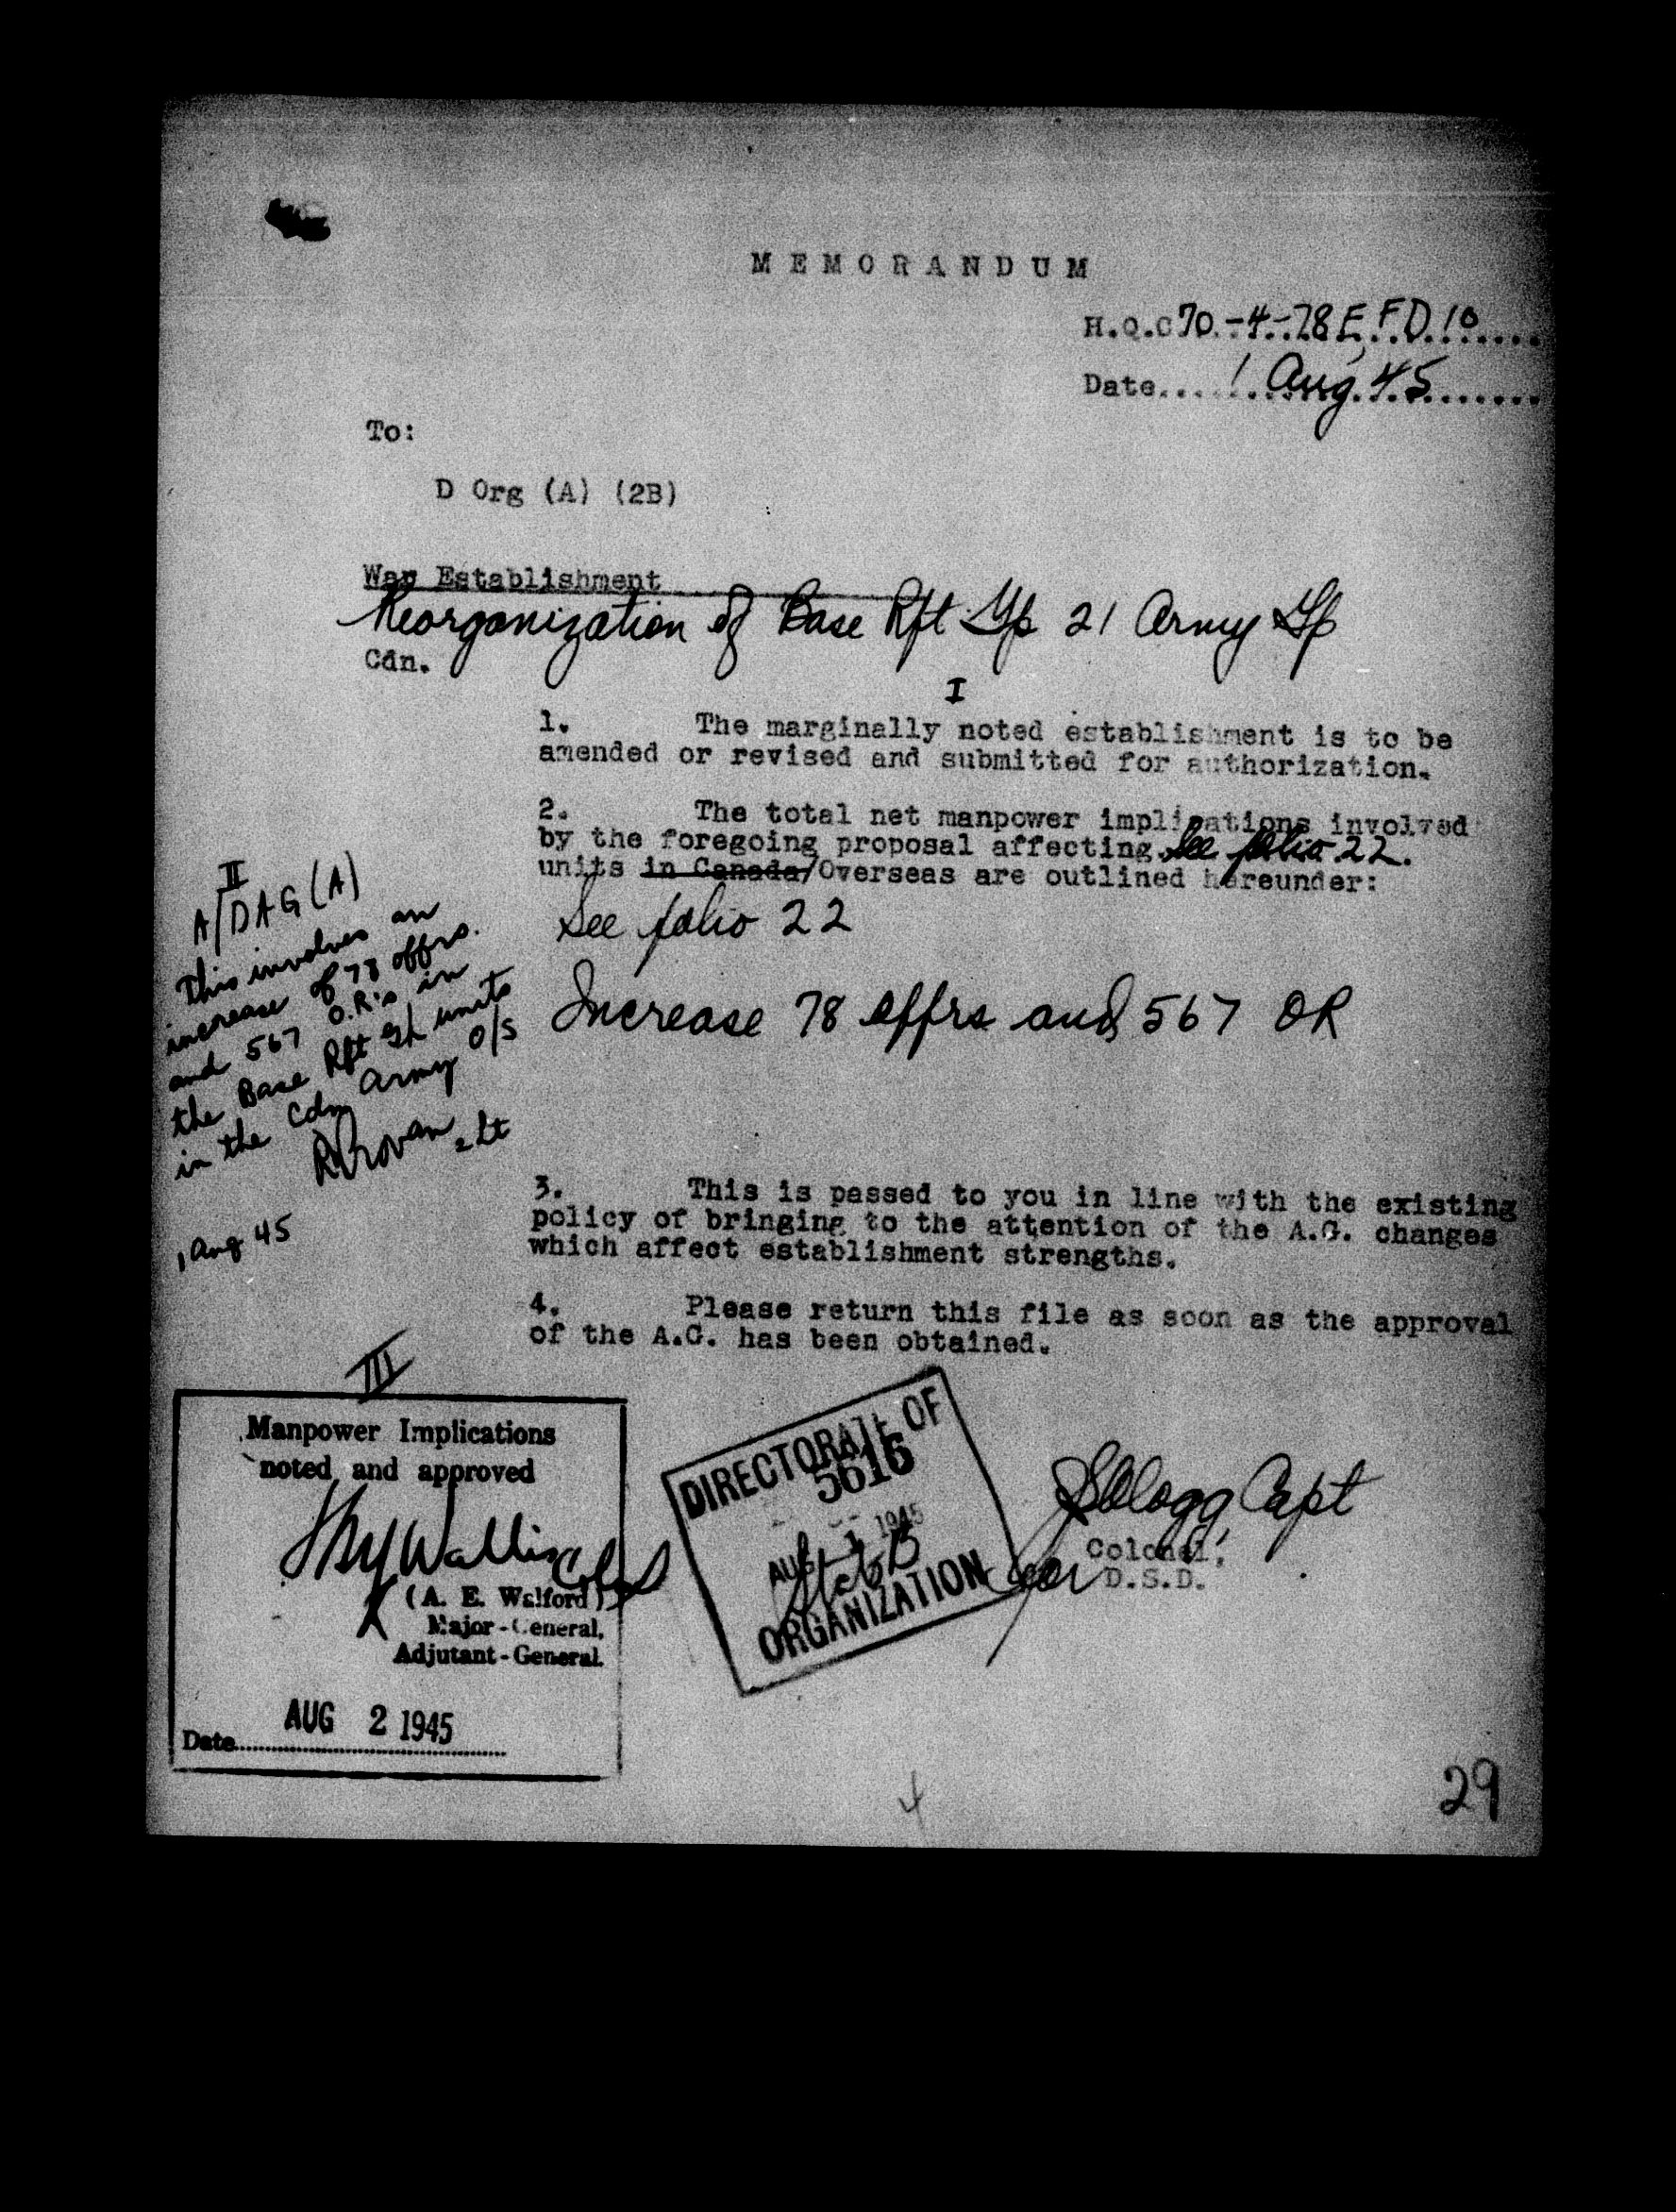 MEMORANDUM
H.Q.C 70-4-78E, F.D. 10
Date.... 1 Aug. 45
To:
D Org (A) (2B)
War Establishment
Reorganization of Base Rft Gp 21 Army Gp
Cdn.
I
1. The marginally noted establishment is to be
amended or revised and submitted for authorization.
2. The total net manpower implications involved
by the foregoing proposal affecting. See folio 22.
units in Canada/Overseas are outlined hereunder:
See folio 22
Increase 78 offrs and 567 OR
II
A/DAG (A)
This involves an
increase of 78 offrs.
and 567 O.R's in
the Base Rft Gp units
in the Cdn Army O/S
2Lt
1 Aug 45
3. This is passed to you in line with the existing
policy of bringing to the attention of the A.G. changes
which affect establishment strengths.
4. Please return this file as soon as the approval
of the A.G. has been obtained.
III
Manpower Implications
noted and approved
(A. E. Walford)
Major-General,
Adjutant-General.
AUG 2 1945
Date
DIRECTORATE OF
5616
AUG 1 1945
ORGANIZATION
Capt
for Colonel,
D.S.D.
29